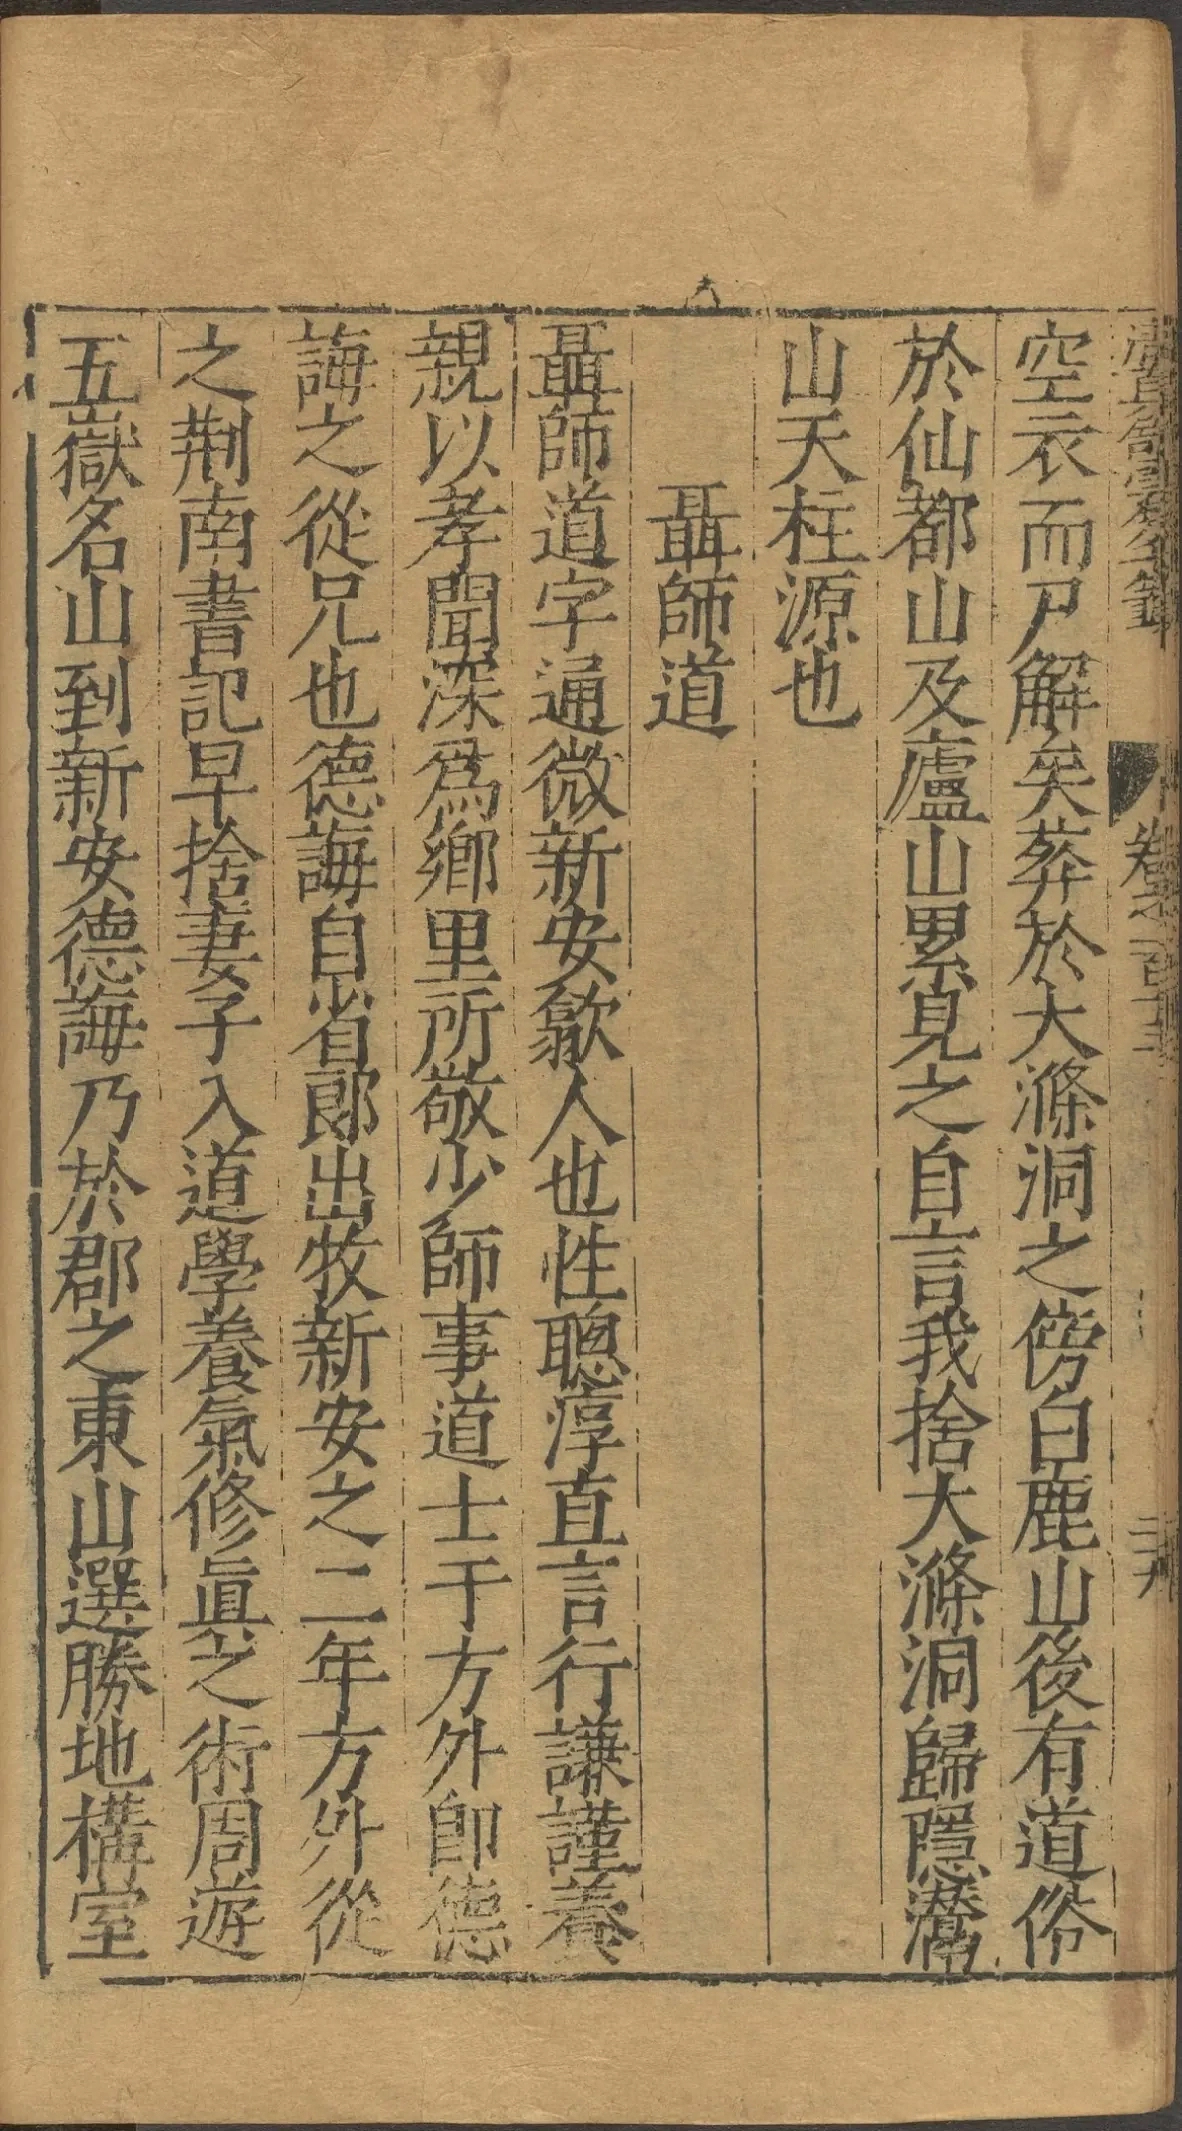 空衣而尸解矣葬於大滌洞之傍白鹿山後有道俗
於仙都山及廬山累見之自言我捨大滌洞歸隱灊
山天柱源也
聶師道
聶師道字通微新安歙人也性聰淳直言行謙謹養
親以孝聞深爲鄉里所敬少師事道士于方外卽德
誨之從兄也德誨自省郎出牧新安之二年方外從
之荆南書記早捨妻子入道學養氣修眞之術周遊
五嶽名山到新安德誨乃於郡之東山選勝地構室